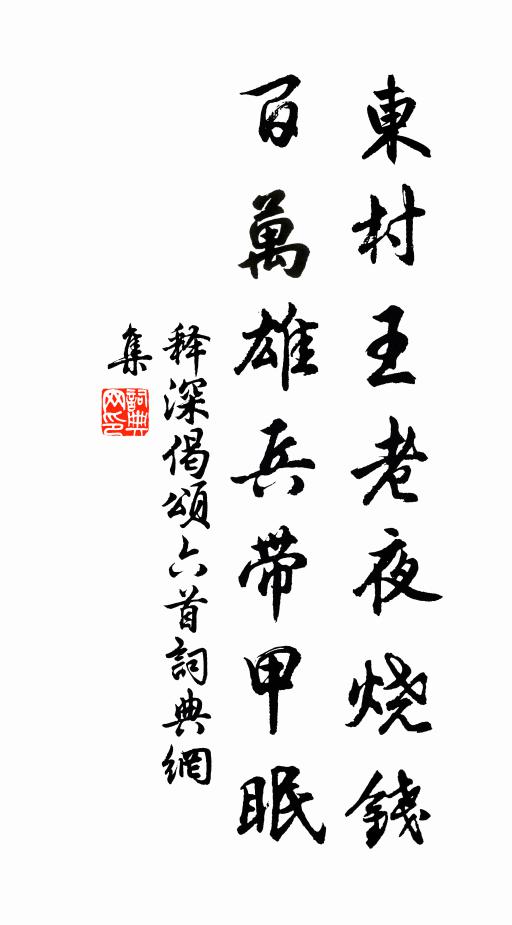 東村王老夜烧錢
百萬雄兵带甲眠
释深偈頌六首詞典網
集
詞典
网印